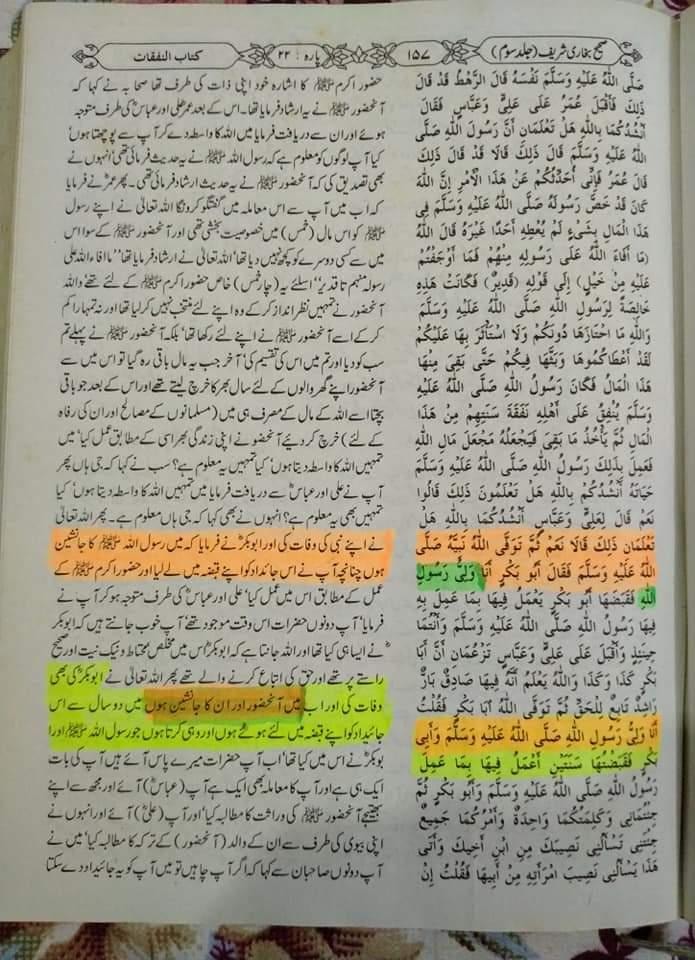 صحیح بخاری شریف (جلد سوم) ۱۵۷ پارہ : ۲۲ کتاب النفقات
صَلَّی اللّٰهُ عَلَيْهِ وَسَلَّمَ نَفْسَهُ قَالَ الرَّهْطُ قَدْ قَالَ
ذَلِكَ فَأَقْبَلَ عُمَرُ عَلَى عَلِيٍّ وَعَبَّاسٍ فَقَالَ
أَنْشُدُكُمَا بِاللّٰهِ هَلْ تَعْلَمَانِ أَنَّ رَسُولَ اللّٰهِ صَلَّى
اللّٰهُ عَلَيْهِ وَسَلَّمَ قَالَ ذَلِكَ قَالَا قَدْ قَالَ ذَلِكَ
قَالَ عُمَرُ فَإِنِّي أُحَدِّثُكُمْ عَنْ هَذَا الْأَمْرِ إِنَّ اللّٰهَ
كَانَ قَدْ خَصَّ رَسُولَهُ صَلَّى اللّٰهُ عَلَيْهِ وَسَلَّمَ فِي
هَذَا الْمَالِ بِشَيْءٍ لَمْ يُعْطِهِ أَحَدًا غَيْرَهُ قَالَ اللّٰهُ
(مَا أَفَاءَ اللّٰهُ عَلَى رَسُولِهِ مِنْهُمْ فَمَا أَوْجَفْتُمْ
عَلَيْهِ مِنْ خَيْلٍ) إِلَى قَوْلِهِ (قَدِيرٌ) فَكَانَتْ هَذِهِ
خَالِصَةً لِرَسُولِ اللّٰهِ صَلَّى اللّٰهُ عَلَيْهِ وَسَلَّمَ
وَاللّٰهِ مَا احْتَازَهَا دُونَكُمْ وَلَا اسْتَأْثَرَ بِهَا عَلَيْكُمْ
لَقَدْ أَعْطَاكُمُوهَا وَبَثَّهَا فِيكُمْ حَتَّى بَقِيَ مِنْهَا
هَذَا الْمَالُ فَكَانَ رَسُولُ اللّٰهِ صَلَّى اللّٰهُ عَلَيْهِ
وَسَلَّمَ يُنْفِقُ عَلَى أَهْلِهِ نَفَقَةَ سَنَتِهِمْ مِنْ هَذَا
الْمَالِ ثُمَّ يَأْخُذُ مَا بَقِيَ فَيَجْعَلُهُ مَجْعَلَ مَالِ اللّٰهِ
فَعَمِلَ بِذَلِكَ رَسُولُ اللّٰهِ صَلَّى اللّٰهُ عَلَيْهِ وَسَلَّمَ
حَيَاتَهُ أَنْشُدُكُمْ بِاللّٰهِ هَلْ تَعْلَمُونَ ذَلِكَ قَالُوا
نَعَمْ قَالَ لِعَلِيٍّ وَعَبَّاسٍ أَنْشُدُكُمَا بِاللّٰهِ هَلْ
تَعْلَمَانِ ذَلِكَ قَالَا نَعَمْ ثُمَّ تَوَفَّى اللّٰهُ نَبِيَّهُ صَلَّى
اللّٰهُ عَلَيْهِ وَسَلَّمَ فَقَالَ أَبُو بَكْرٍ أَنَا وَلِيُّ رَسُولِ
اللّٰهِ فَقَبَضَهَا أَبُو بَكْرٍ يَعْمَلُ فِيهَا بِمَا عَمِلَ بِهِ
فِيهَا رَسُولُ اللّٰهِ صَلَّى اللّٰهُ عَلَيْهِ وَسَلَّمَ وَأَنْتُمَا
حِينَئِذٍ وَأَقْبَلَ عَلَى عَلِيٍّ وَعَبَّاسٍ تَزْعُمَانِ أَنَّ أَبَا
بَكْرٍ كَذَا وَكَذَا وَاللّٰهُ يَعْلَمُ أَنَّهُ فِيهَا صَادِقٌ بَارٌّ
رَاشِدٌ تَابِعٌ لِلْحَقِّ ثُمَّ تَوَفَّى اللّٰهُ أَبَا بَكْرٍ فَقُلْتُ
أَنَا وَلِيُّ رَسُولِ اللّٰهِ صَلَّى اللّٰهُ عَلَيْهِ وَسَلَّمَ وَأَبِي
بَكْرٍ فَقَبَضْتُهَا سَنَتَيْنِ أَعْمَلُ فِيهَا بِمَا عَمِلَ
رَسُولُ اللّٰهِ صَلَّى اللّٰهُ عَلَيْهِ وَسَلَّمَ وَأَبُو بَكْرٍ ثُمَّ
جِئْتُمَانِي وَكَلِمَتُكُمَا وَاحِدَةٌ وَأَمْرُكُمَا جَمِيعٌ
جِئْتَنِي تَسْأَلُنِي نَصِيبَكَ مِنِ ابْنِ أَخِيكَ وَأَتَى
هَذَا يَسْأَلُنِي نَصِيبَ امْرَأَتِهِ مِنْ أَبِيهَا فَقُلْتُ إِنْ
حضور اکرم ﷺ کا اشارہ خود اپنی ذات کی طرف تھا صحابہ نے کہا کہ
آنحضور ﷺ نے یہ ارشاد فرمایا تھا۔ اس کے بعد عمر علی اور عباس کی طرف متوجہ
ہوئے اور ان سے دریافت فرمایا میں اللہ کا واسطہ دے کر آپ سے پوچھتا ہوں'
کیا آپ لوگوں کو معلوم ہے کہ رسول اللہ ﷺ نے یہ حدیث فرمائی تھی' انہوں نے
بھی تصدیق کی کہ آنحضور ﷺ نے یہ حدیث ارشاد فرمائی تھی۔ پھر عمر نے فرمایا
کہ اب میں آپ سے اس معاملہ میں گفتگو کرونگا اللہ تعالی نے اپنے رسول
ﷺ کو اس مال (خمس) میں خصوصیت بخشی تھی اور آنحضور ﷺ کے سوا اس
میں سے کسی دوسرے کو کچھ نہیں دیا تھا' اللہ تعالیٰ نے ارشاد فرمایا تھا ''ما افاء اللہ علی
رسولہ منہم تا قدیر'' اسلئے یہ (چار خمس) خاص حضور اکرم ﷺ کے لئے تھے واللہ
آنحضور نے تمہیں نظر انداز کر کے وہ اپنے لئے منتخب نہیں کر لیا تھا اور نہ تمہارا کم
کر کے اسے آنحضور ﷺ نے اپنے لئے رکھا تھا' بلکہ آنحضور ﷺ نے پہلے تم
سب کو دیا اور تم میں اس کی تقسیم کی' آخر جب یہ مال باقی رہ گیا تو اس میں سے
آنحضور اپنے گھر والوں کے لئے سال بھر کا خرچ لیتے تھے اور اس کے بعد جو باقی
بچتا اسے اللہ کے مال کے مصرف ہی میں (مسلمانوں کے مصالح اور ان کی رفاہ
کے لئے) خرچ کر دیے آنحضور نے اپنی زندگی بھر اسی کے مطابق عمل کیا' میں
تمہیں اللہ کا واسطہ دیتا ہوں' کیا تمہیں یہ معلوم ہے؟ سب نے کہا کہ جی ہاں پھر
آپ نے علی اور عباس سے دریافت فرمایا میں تمہیں اللہ کا واسطہ دیتا ہوں' کیا
تمہیں بھی یہ معلوم ہے؟ انہوں نے بھی کہا کہ جی ہاں معلوم ہے۔ پھر اللہ تعالیٰ
نے اپنے نبی کی وفات کی اور ابوبکر نے فرمایا کہ میں رسول اللہ ﷺ کا جانشین
ہوں چنانچہ آپ نے اس جائداد کو اپنے قبضہ میں لے لیا اور حضور اکرم ﷺ کے
عمل کے مطابق اس میں عمل کیا' علی اور عباس کی طرف متوجہ ہو کر آپ نے
فرمایا' آپ دونوں حضرات اس وقت موجود تھے' آپ خوب جانتے ہیں کہ ابوبکر
نے ایسا ہی کیا تھا اور اللہ جانتا ہے کہ ابوبکر اس میں مخلص محتاط و نیک نیت اور صحیح
راستے پر تھے اور حق کی اتباع کرنے والے تھے پھر اللہ تعالیٰ نے ابوبکر کی بھی
وفات کی اور اب میں آنحضور اور ان کا جانشین ہوں میں دو سال سے اس
جائیداد کو اپنے قبضہ میں لئے ہوئے ہوں اور وہی کرتا ہوں جو رسول اللہ ﷺ اور
ابوبکر نے اس میں کیا تھا' اب آپ حضرات میرے پاس آئے ہیں آپ کی بات
ایک ہی ہے اور آپ کا معاملہ بھی ایک ہے آپ (عباس) آئے اور مجھ سے اپنے
بھتیجے آنحضور ﷺ کی وراثت کا مطالبہ کیا' اور آپ (علی) آئے اور انہوں نے
اپنی بیوی کی طرف سے ان کے والد (آنحضور) کے ترکہ کا مطالبہ کیا' میں نے
آپ دونوں صاحبان سے کہا کہ اگر آپ چاہیں تو میں آپ کو یہ جائیداد دے سکتا